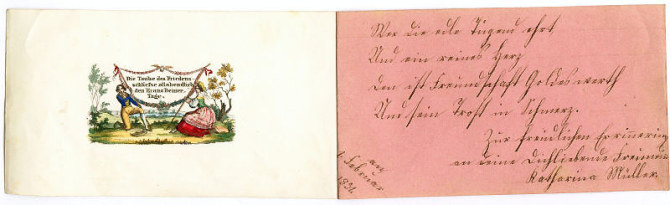 Die Taube des Friedens
schliesse allabendlich
den Kranz Deiner
Tage.
Wer die edle Tugend ehrt,
Und ein reines Herz
Dem ist Freundschaft Goldes werth
Und sein Trost in Schmerz.
Zur freundlichen Erinnerung
an deine Dichliebende Freundin
Katharina Müller.
am
1. Februar